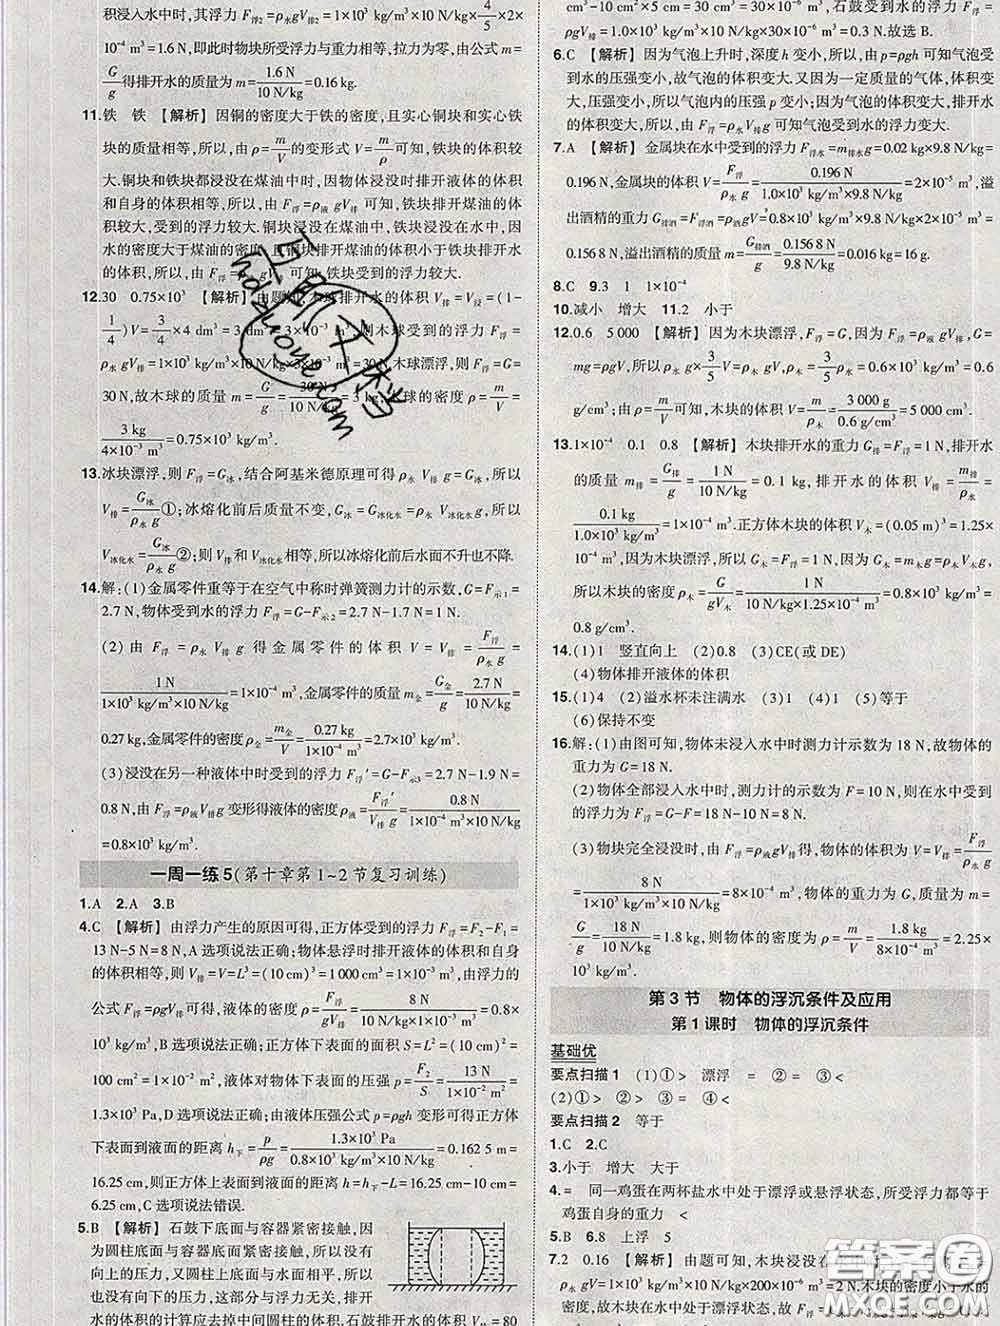 积浸入水中时,其浮力 F浮2=ρ水 gV排=1×10³ kg/m³×10 N/kg×4/5×2×
10⁻⁴ m³=1.6 N,即此时物块所受浮力与重力相等,拉力为零.由公式 m=
G/g得排开水的质量为 m=1.6 N/10 N/kg=0.16 kg.
11.铁 铁 【解析】因铜的密度大于铁的密度,且实心铜块和实心铁
块的质量相等,所以,由 ρ=m/V的变形式 V=m/ρ可知,铁块的体积较
大.铜块和铁块都浸没在煤油中时,因物体浸没时排开液体的体积
和自身的体积相等,所以,铁块排开煤油的体积较大,由 F浮=ρ液 gV排可知,铁块
受到的浮力较大.铜块浸没在煤油中,铁块浸没在水中时,因
水的密度大于煤油的密度,且铜块排开煤油的体积小于铁块排开水
的体积,所以,由 F浮=ρ液 gV排 可知,铁块受到的浮力较大.
12.30 0.75×10³ 【解析】由题知,木球排开水的体积 V排=V浸=(1-
1/4)V=3/4×4 dm³=3 dm³=3×10⁻³ m³,则木球受到的浮力 F浮=
ρ水 gV排=1×10³ kg/m³×10 N/kg×3×10⁻³ m³=30 N.木球漂浮,则 F浮=G=
30 N,故木球的质量 m=G/g=30 N/10 N/kg=3 kg,木球的密度 ρ木=m/V=
3 kg/4×10⁻³ m³=0.75×10³ kg/m³.
13.冰块漂浮,则 F浮=G冰,结合阿基米德原理可得 ρ水 V排g=G冰,所以
V排=G冰/ρ水g①;冰熔化前后质量不变,G冰=G冰化水=ρ水 V冰化水g,所以
V冰化水=G冰/ρ水g②;则 V排=V冰化水,所以冰熔化前后水面不升也不降.
14.解:(1)金属零件重等于在空气中称时弹簧测力计的示数,G=F示1=
2.7 N,物体受到水的浮力 F浮=G-F示2=2.7 N-1.7 N=1 N.
(2)由 F浮=ρ水 V排g 得金属零件的体积 V=V排=F浮/ρ水 g=
1 N/1×10³ kg/m³×10 N/kg=1×10⁻⁴ m³,金属零件的质量 m金=G金/g=2.7 N/10 N/kg=
0.27 kg,金属零件的密度 ρ金=m金/V=0.27 kg/1×10⁻⁴ m³=2.7×10³ kg/m³.
(3)浸没在另一种液体中时受到的浮力 F浮′=G-F示3=2.7 N-1.9 N=
0.8 N,由 F浮=ρ液 V排g 变形得液体的密度 ρ液=F浮′/V排 g=0.8 N/1×10⁻⁴ m³×10 N/kg
=0.8×10³ kg/m³.
一周一练5(第十章第1~2节复习训练)
1.A 2.A 3.B
4.C 【解析】由浮力产生的原因可得,正方体受到的浮力 F浮=F₂-F₁=
13 N-5 N=8 N,A 选项说法正确;物体悬浮时排开液体的体积和自身
的体积相等,则 V排=V=L³=(10 cm)³=1 000 cm³=1×10⁻³ m³,由浮力的
公式 F浮=ρ液 gV排可得,液体的密度 ρ液=F浮/gV排=8 N/10 N/kg×1×10⁻³ m³=
0.8×10³ kg/m³,B 选项说法正确;正方体下表面的面积 S=L²=(10 cm)²=
100 cm²=1×10⁻² m²,液体对物体下表面的压强 p=F₂/S=13 N/1×10⁻² m²=
1.3×10³ Pa,D 选项说法正确;由液体压强公式 p=ρgh 变形可得正方体
下表面到液面的距离 h下=p/ρg=1.3×10³ Pa/0.8×10³ kg/m³×10 N/kg=0.162 5 m=
16.25 cm,则正方体上表面到液面的距离 h=h下-L=16.25 cm-10 cm=
6.25 cm,C 选项说法错误.
5.B 【解析】石鼓下底面与容器紧密接触,因
为圆柱底面与容器底面紧密接触,所以没有
向上的压力,又因圆柱上面与水面相平,所以
也没有向下的压力,这部分与浮力无关,排开
水的体积的计算应去掉中间圆柱的体积 V排=80
cm³-10 cm²×5 cm=30 cm³=30×10⁻⁶ m³,石鼓受到水的浮力 F浮=
ρ水gV排=1×10³ kg/m³×10 N/kg×30×10⁻⁶ m³=0.3 N.故选 B.
6.C 【解析】因为气泡上升时,深度 h 变小,所以,由 p=ρgh 可知气泡受
到水的压强变小,故气泡的体积变大.又因为一定质量的气体,体积变
大,压强变小,所以气泡内的压强 p 变小;因为气泡的体积变大,排开水
的体积变大,所以由 F浮=ρ水 V排g 可知气泡受到浮力变大.
7.A 【解析】金属块在水中受到的浮力 F浮水=m排水g=0.02 kg×9.8 N/kg=
0.196 N,金属块的体积 V=F浮/ρ水g=0.196 N/1.0×10³ kg/m³×9.8 N/kg=2×10⁻⁵ m³,溢
出酒精的重力 G排酒=F浮酒=ρ酒gV=0.8×10³ kg/m³×9.8 N/kg×2×10⁻⁵ m³=
0.156 8 N,溢出酒精的质量 m=G排酒/g=0.156 8 N/9.8 N/kg=0.016 kg=16 g.
8.C 9.3 1 1×10⁻⁴
10.减小 增大 11.2 小于
12.0.6 5 000 【解析】因为木块漂浮,F浮=G,因为 F浮=ρ水 gV排,G=
mg=ρgV,所以,ρ水 g×3/5V=ρgV,所以,ρ=3/5ρ水=0.6×10³ kg/m³=
0.6 g/cm³;由 ρ=m/V可知,木块的体积 V=m/ρ=3 000 g/0.6 g/cm³=5 000 cm³.
13.1×10⁻⁴ 0.1 0.8 【解析】木块排开水的重力 G排=F浮=1 N,排开水
的质量 m排=G排/g=1 N/10 N/kg=0.1 kg,排开水的体积 V排=m排/ρ水=
0.1 kg/1.0×10³ kg/m³=1×10⁻⁴ m³.正方体木块的体积 V木=(0.05 m)³=1.25×
10⁻⁴ m³,因为木块漂浮,所以 G木=F浮=1 N,因为 G木=m木g=ρ木gV木,
所以木块的密度 ρ木=G/gV木=1 N/10 N/kg×1.25×10⁻⁴ m³=0.8×10³ kg/m³=
0.8 g/cm³.
14.(1)1 竖直向上 (2)0.8 (3)CE(或 DE)
(4)物体排开液体的体积
15.(1)4 (2)溢水杯未注满水 (3)1 (4)1 (5)等于
(6)保持不变
16.解:(1)由图可知,物体未浸入水中时测力计示数为 18 N,故物体的
重力为 G=18 N.
(2)物体全部浸入水中时,测力计的示数为 F=10 N,则在水中受到
的浮力为 F浮=G-F=18 N-10 N=8 N.
(3)物块完全浸没时,由 F浮=ρ液 gV排得,物体的体积为 V=V排=F浮/ρ水g=
8 N/1×10³ kg/m³×10 N/kg=8×10⁻⁴ m³,由 G=mg 得,物体的质量为 m=
G/g=18 N/10 N/kg=1.8 kg,则物体的密度为 ρ=m/V=1.8 kg/8×10⁻⁴ m³=2.25×
10³ kg/m³.
第3节 物体的浮沉条件及应用
第1课时 物体的浮沉条件
基础优
要点扫描1 (1)①> 漂浮 = ②= ③<
(2)①> ②< ③= ④<
要点扫描2 等于
1.C 2.C
3.小于 增大 大于
4.= 同一鸡蛋在两杯盐水中处于漂浮或悬浮状态,所受浮力都等于
鸡蛋自身的重力 <
5.B 6.8 上浮 5
7.2 0.16 【解析】由题可知,木块浸没在
ρ水 gV=1×10³ kg/m³×10 N/kg×200×10⁻⁶ m³=2 N.木块的密度小于水的
密度,所以木块静止时处于漂浮状态,故
答案圈
MXQE.COM